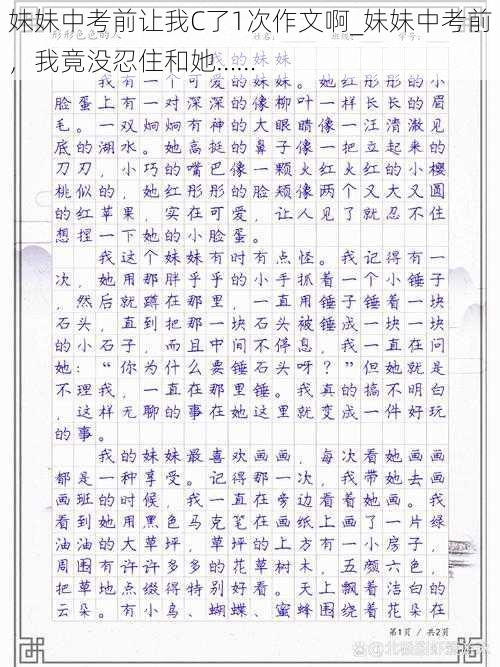 我有一个可爱的妹妹。她红彤彤的小
脸蛋上有一对深深的像柳叶一样长长的眉
毛。一双炯炯有神的大眼睛像一汪清澈见
底的湖水。她高挺的鼻子像一把立起来的
刀刃，小巧的嘴巴像一颗火红火红的小樱
桃似的，她红彤彤的脸颊像两个又大又圆
的红苹果，实在可爱，让人见了就忍不住
想捏一下她的小脸蛋。
我这个妹妹有时有点怪。我记得有一
次，她用那胖乎乎的小手抓着一个小锤子
，然后就蹲在那里，一直用锤子锤着一块
石头，直到把那一块石头被锤成一块一块
的小石子，而且中间不停息，我一直在问
她：“你为什么要锤石头呀？”但她就是
不理我，一直在那里锤。我真的搞不明白
，这样无聊的事在她这里就变成一件好玩
的事。
我的妹妹最喜欢画画，每次看她画画
都是一种享受。记得那一次，我带她去画
画班的时候，我一直在旁边看着她画。我
看到她用黑色马克笔在画纸上画了一片绿
油油的大草坪，草坪的上方有一小房子，
周围有许许多多的花草树木，五颜六色，
把草地点缀得特别好看。天上飘着洁白的
云朵。有小鸟、蝴蝶、蜜蜂围绕着花朵在
第1页 / 共2页